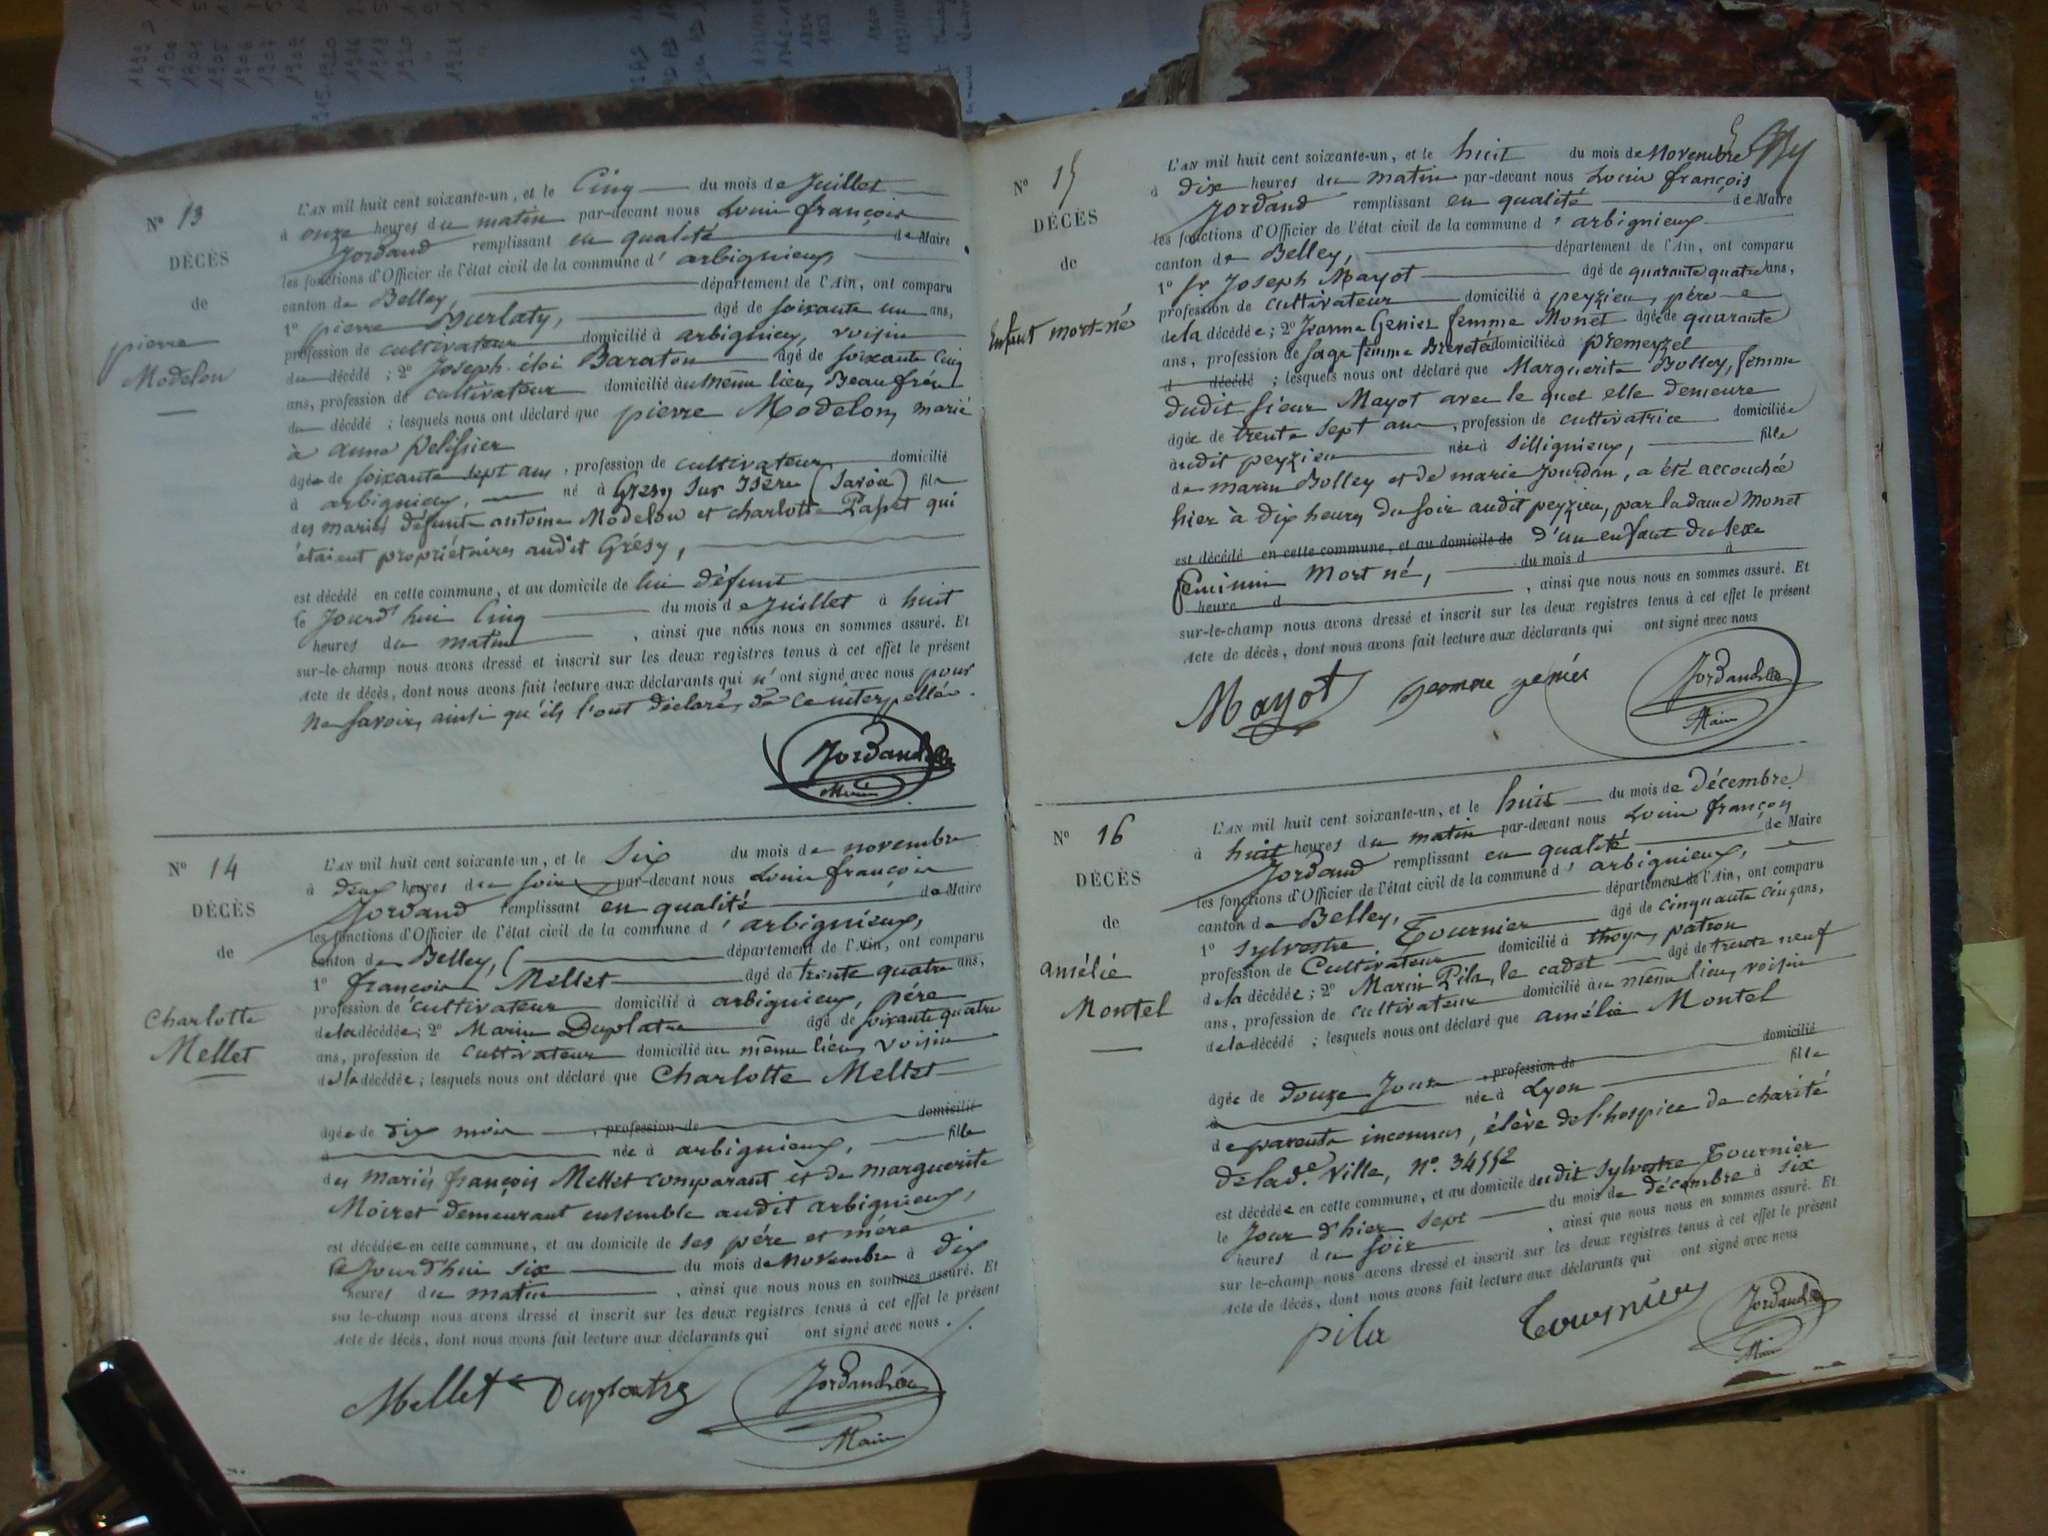 N° 13
DÉCÈS
de
pierre
Modelon
L'AN mil huit cent soixante-un, et le Cinq du mois de Juillet
à onze heures du matin par-devant nous Louis françois
Jordand remplissant en qualité de Maire
les fonctions d'Officier de l'état civil de la commune d'arbignieux
canton de Belley, département de l'Ain, ont comparu
1° pierre âgé de soixante un ans,
profession de cultivateur domicilié à arbignieux, voisin
du décédé ; 2° Joseph éloi Baraton âgé de soixante cinq
ans, profession de cultivateur domicilié au même lieu, Beaufrère
du décédé ; lesquels nous ont déclaré que pierre Modelon, marié
à anne pelissier
âgé de soixante sept ans, profession de cultivateur domicilié
à arbignieux, né à Grésy sur Isère (Savoie) fils
des mariés défunts antoine Modelon et charlotte Papet qui
étaient propriétaires audit Grésy,
est décédé en cette commune, et au domicile de lui défunt
le Jourd'hui Cinq du mois de Juillet à huit
heures du matin, ainsi que nous nous en sommes assuré. Et
sur-le-champ nous avons dressé et inscrit sur les deux registres tenus à cet effet le présent
Acte de décès, dont nous avons fait lecture aux déclarants qui n'ont signé avec nous pour
ne savoir, ainsi qu'ils l'ont déclaré, de ce interpellés.
Jordand
Maire
N° 14
DÉCÈS
de
Charlotte
Mellet
L'AN mil huit cent soixante-un, et le Six du mois de novembre
à deux heures du soir par-devant nous Louis françois
Jordand remplissant en qualité de Maire
les fonctions d'Officier de l'état civil de la commune d'arbignieux,
canton de Belley, département de l'Ain, ont comparu
1° françois Mellet âgé de trente quatre ans,
profession de cultivateur domicilié à arbignieux, père
de la décédée ; 2° Marin Duplatre âgé de soixante quatre
ans, profession de cultivateur domicilié au même lieu, voisin
de la décédée ; lesquels nous ont déclaré que Charlotte Mellet
âgée de dix mois, profession de domicilié
à née à arbignieux, fille
des mariés françois Mellet comparant et de marguerite
Moiret demeurant ensemble audit arbignieux,
est décédée en cette commune, et au domicile de ses père et mère
le Jourd'hui six du mois de Novembre à dix
heures du matin, ainsi que nous nous en sommes assuré. Et
sur-le-champ nous avons dressé et inscrit sur les deux registres tenus à cet effet le présent
Acte de décès, dont nous avons fait lecture aux déclarants qui ont signé avec nous.
Mellet Duplatre Jordand
Maire
N° 15
DÉCÈS
de
Enfant mort-né
L'AN mil huit cent soixante-un, et le huit du mois de Novembre
à dix heures du matin par-devant nous Louis françois
Jordand remplissant en qualité de Maire
les fonctions d'Officier de l'état civil de la commune d'arbignieux
canton de Belley, département de l'Ain, ont comparu
1° Sr Joseph Mayot âgé de quarante quatre ans,
profession de cultivateur domicilié à peyzieu, père
de la décédée ; 2° Jeanne Genier femme Monet âgée de quarante
ans, profession de sage femme Brevetée domiciliée à premeyzel
d décédé ; lesquels nous ont déclaré que Marguerite Bolley, femme
dudit sieur Mayot avec le quel elle demeure
âgée de trente sept ans, profession de cultivatrice domiciliée
audit peyzieu née à Sillignieux, fille
de marin Bolley et de marie Jourdan, a été accouchée
hier à dix heures du soir audit peyzieu, par la dame Monet
est décédé en cette commune, et au domicile de d'un enfant du sexe
féminin Mort né, du mois d à
heure d, ainsi que nous nous en sommes assuré. Et
sur-le-champ nous avons dressé et inscrit sur les deux registres tenus à cet effet le présent
Acte de décès, dont nous avons fait lecture aux déclarants qui ont signé avec nous
Mayot Jeanne genier Jordand
Maire
N° 16
DÉCÈS
de
amélie
Montel
L'AN mil huit cent soixante-un, et le huit du mois de Décembre
à huit heures du matin par-devant nous Louis françois
Jordand remplissant en qualité de Maire
les fonctions d'Officier de l'état civil de la commune d'arbignieux,
canton de Belley, département de l'Ain, ont comparu
1° Sylvestre Tournier âgé de cinquante cinq ans,
profession de Cultivateur domicilié à thoys, patron
de la décédée ; 2° Marin Pila, le cadet âgé de trente neuf
ans, profession de cultivateur domicilié au même lieu, voisin
de la décédé ; lesquels nous ont déclaré que amélie Montel
âgée de douze Jours, profession de domicilié
à née à Lyon fille
de parents inconnus, élève de l'hospice de charité
de lad.e Ville, N°. 34552
est décédée en cette commune, et au domicile dudit Sylvestre Tournier
le Jour d'hier sept du mois de décembre à six
heures du soir, ainsi que nous nous en sommes assuré. Et
sur-le-champ nous avons dressé et inscrit sur les deux registres tenus à cet effet le présent
Acte de décès, dont nous avons fait lecture aux déclarants qui ont signé avec nous
pila Tournier Jordand
Maire